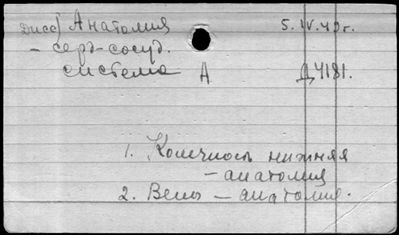 Дисс] Анатомия 5.IV.49г.
– серд-сосуд.
система А Д4181.
1. Конечность нижняя
– анатомия
2. Вены – анатомия.